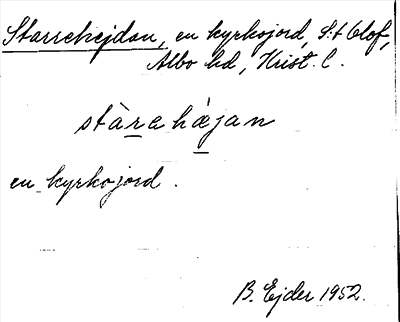 Starrehejdan, en kyrkojord, S:t Olof,
Albo hd, Krist. l.
stàrahä́jan
en kyrkojord.
B. Ejder 1952.